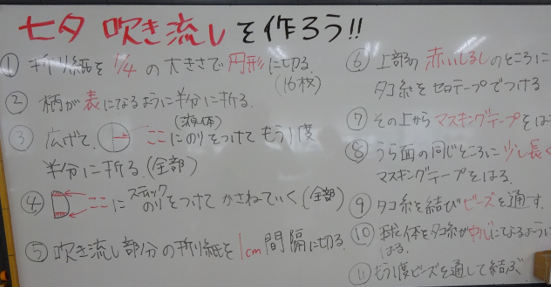 七夕 吹き流しを作ろう!!
① 折り紙を1/4の大きさで円形に切る.
(16枚)
② 柄が表になるように半分に折る.
③ 広げて、ここに(液体)のりをつけてもう1度
半分に折る.(全部)
④ ここにスティックのりをつけてかさねていく(全部)
⑤ 吹き流し部分の折り紙を1cm間隔に切る.
⑥ 上部の赤いしるしのところに
タコ糸をセロテープでつける
⑦ その上からマスキングテープをは
⑧ うら面の同じところに少し長く
マスキングテープをはる.
⑨ タコ糸を結びビーズを通す.
⑩ 球体をタコ糸が中心になるように
はる.
⑪ もう1度ビーズを通して結ぶ